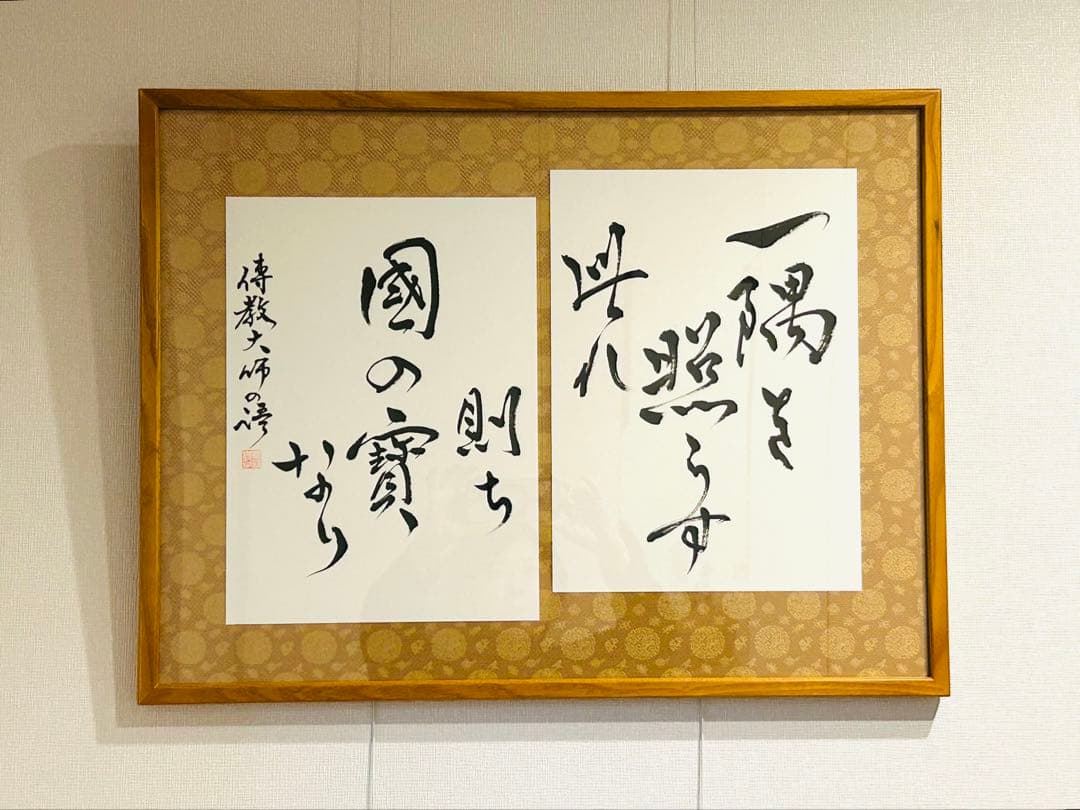 一隅を
照らす
此れ
則ち
國の寶
なり
傳教大師の語